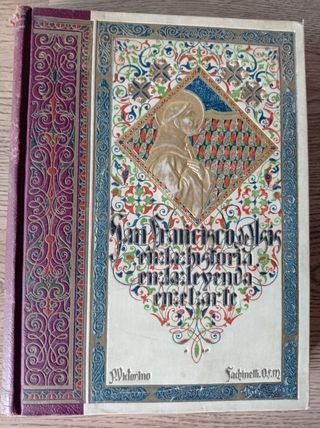 San Francisco de Asis
en la historia
en la leyenda
en el arte
P. Victorino Fachinetti. O.f.m